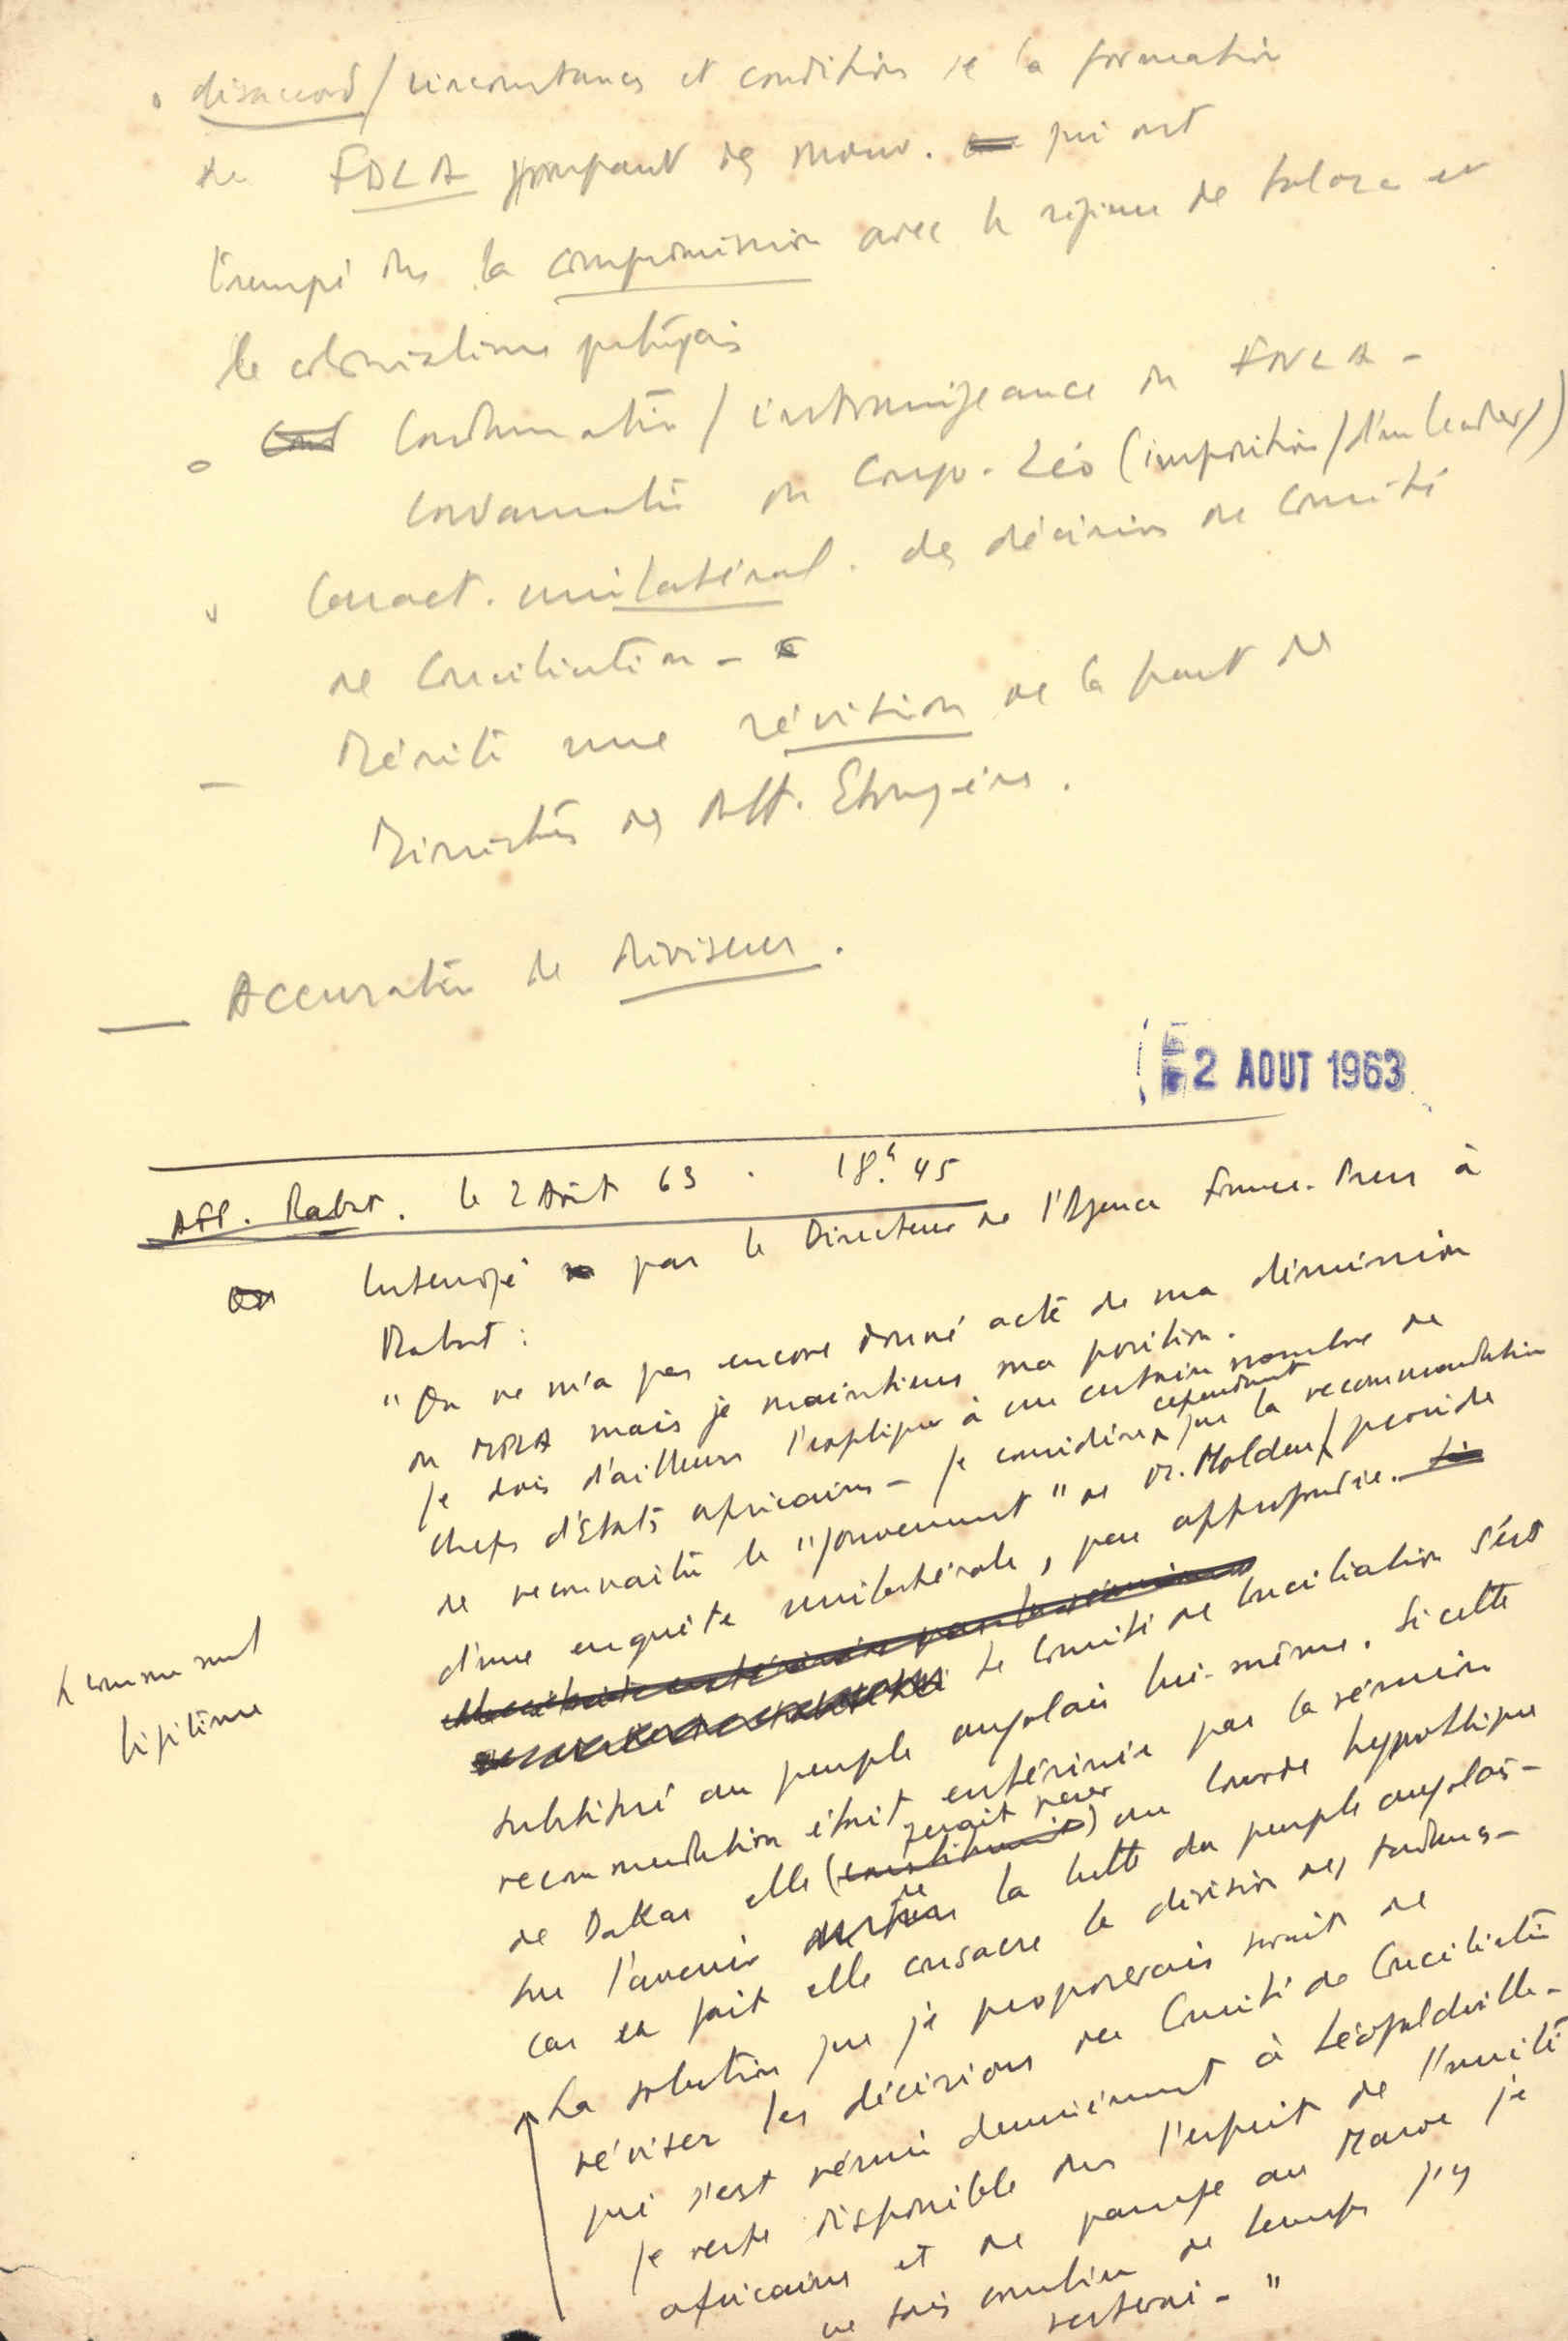 • désaccord / circonstances et conditions de la formation
du FDLA groupant des mouv. qui ont
trempé ds la compromission avec le régime de Salazar et
le colonialisme portugais
o Condamnation / intransigeance du FNLA -
Condamnation du Congo-Léo (imposition / d'un leader/)
Caract. unilatéral. des décisions du Comité
de Conciliation -
- Mérite une révision de la part des
Ministres des Aff. Etrangères.
— Accusation de diviseur.
2 AOUT 1963
AFP. Rabat. le 2 Août 63. 18h.45
Interrogé par le Directeur de l'Agence France-Presse à
Rabat :
"On ne m'a pas encore donné acte de ma démission
du MPLA mais je maintiens ma position.
Je dois d'ailleurs l'expliquer à un certain nombre de
chefs d'Etats africains - Je considère cependant que la recommandation
de reconnaître le "gouvernement" de M. Holden / procède
d'une enquête unilatérale, peu approfondie.
Le Comité de Conciliation s'est
substitué au peuple angolais lui-même. Si cette
recommandation était entérinée par la réunion
de Dakar elle (ferait peser) une lourde hypothèque
sur l'avenir de la lutte du peuple angolais -
car en fait elle consacre la division des
La solution que je proposerais serait de
réviser les décisions du Comité de Conciliation
qui s'est réuni dernièrement à Léopoldville -
Je reste disponible ds l'esprit de l'unité
africaine et de passage au Maroc je
ne sais combien de temps j'y
resterai - "
légitime